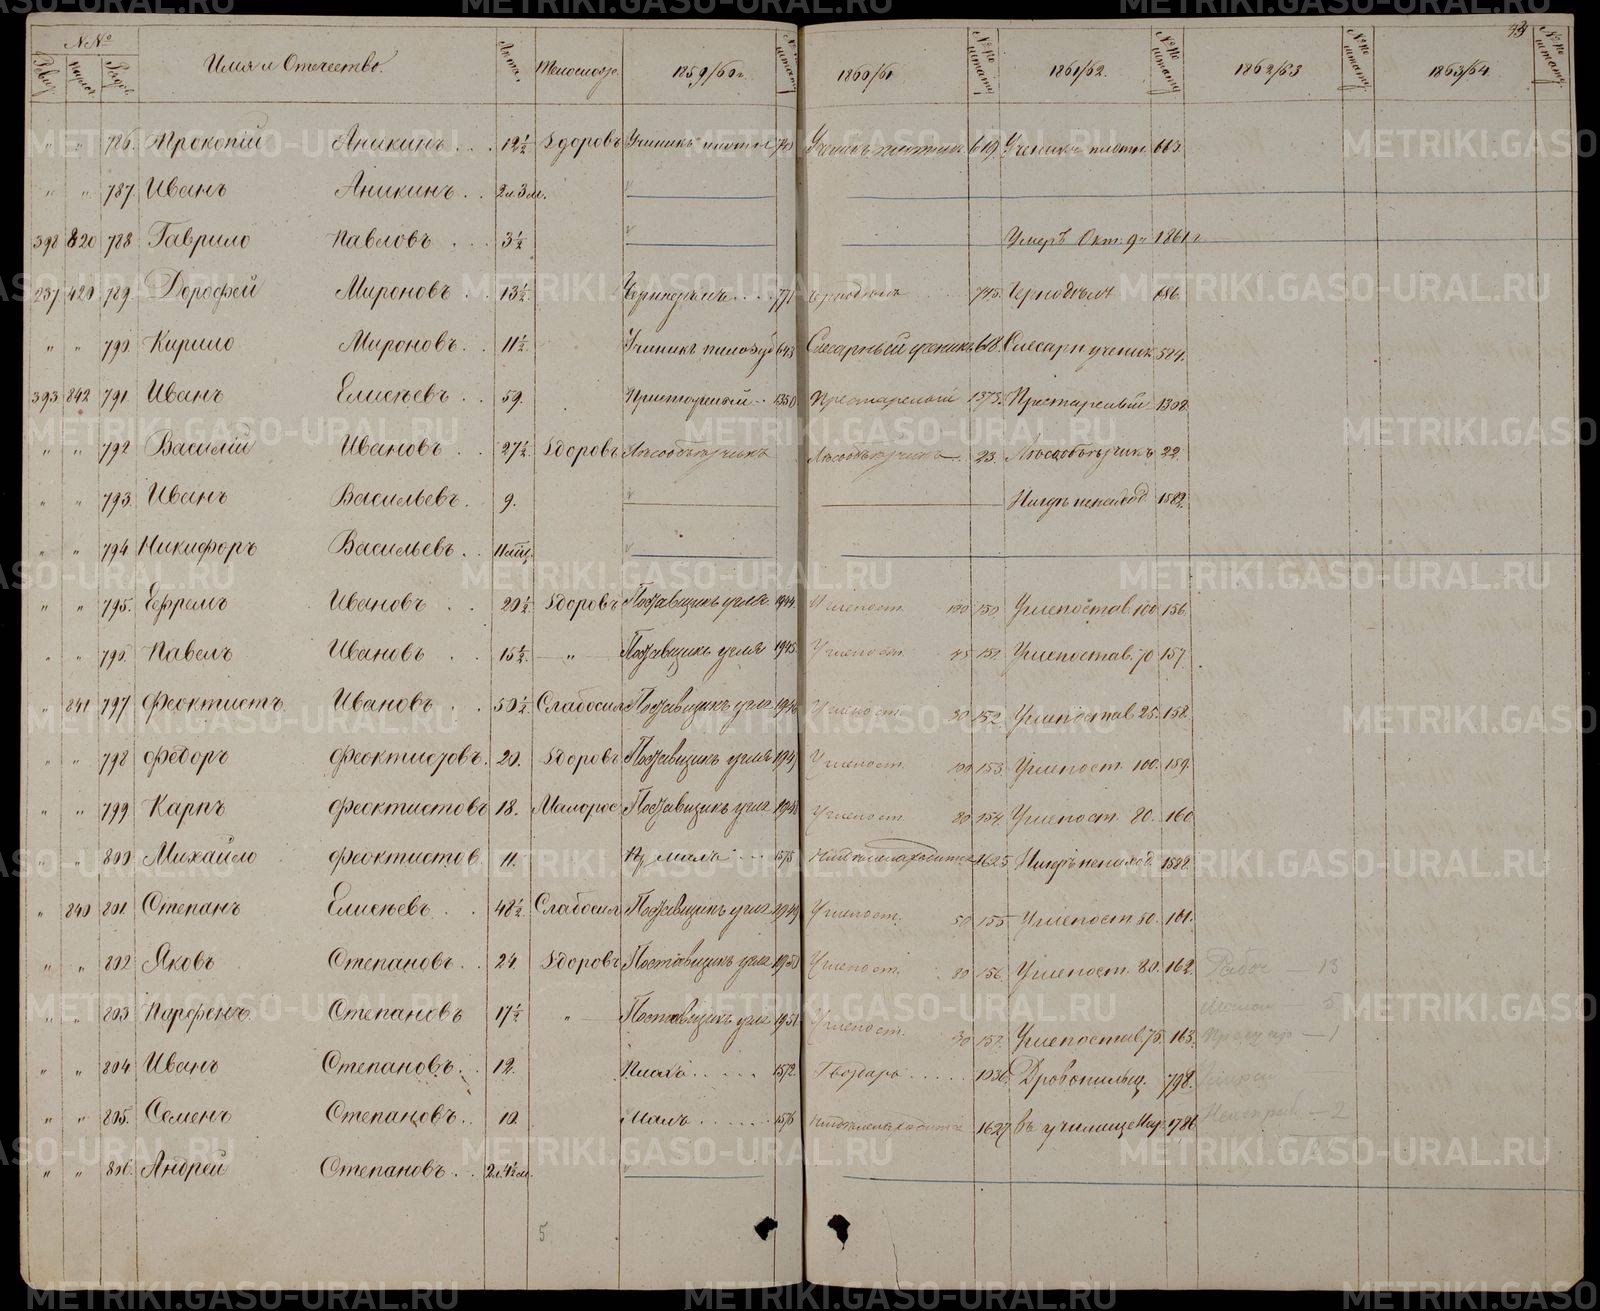 43
№№ Имя и Отечество. Лѣта. Тѣлосложе. 1859/60 г. №№ по штату 1860/61 №№ по штату 1861/62. №№ по штату 1862/63 №№ по штату 1863/64 №№ по штату
„ „ 786. Прокопій Аникинъ 12½ Здоровъ Ученикъ 619. Ученикъ плотн. 663.
„ „ 787. Иванъ Аникинъ 2 л. 3 м.
392 820 788 Гаврило Павловъ 3½ Умеръ Окт. 9 1861 г
237 420 789. Дорофей Мироновъ 13½ Чернодѣлъ 771 Чернодѣлъ 745. Чернодѣлъ 686.
„ „ 790. Кирило Мироновъ 11½ Ученикъ 643 Слесарный ученикъ 618. Слесарн ученик 584.
393 842 791 Иванъ Елисѣевъ 59. Престарелый 1350 Престарелый 1373. Престарелый 1308.
„ „ 792 Василій Ивановъ 27½ Здоровъ Лѣсообъѣзчикъ Лѣсообъѣзчикъ 23. Лѣсообъѣзчикъ 22.
„ „ 793. Иванъ Васильевъ 9. Нигдѣ ненаход. 1582.
„ „ 794 Никифоръ Васильевъ 11 мѣц.
„ „ 795. Ефремъ Ивановъ 20½ Здоровъ Поставщикъ угля 1944. Углепост. 100 150. Углепостав. 100 156.
„ „ 796. Павелъ Ивановъ 15½ „ Поставщикъ угля 1945. Углепост. 45 151 Углепостав. 70 157.
„ 841 797 Феоктистъ Ивановъ 50½ Слабосил Поставщикъ угля 1946 Углепост. 30 152 Углепостав 25. 158.
„ „ 798 Федоръ Феоктистовъ. 20. Здоровъ Поставщикъ угля 1947 Углепост. 100 153. Углепост. 100. 159.
„ „ 799 Карпъ Феоктистовъ 18. Малорос. Поставщикъ угля 1948 Углепост. 80 154. Углепост. 80. 160
„ „ 800 Михайло Феоктистов. 11. малъ 1575 Нигдѣ ненаходится 1625 Нигдѣ ненаход. 1588.
„ 840 801. Степанъ Елисѣевъ 48½ Слабосил Поставщикъ угля 1949 Углепост. 50 155 Углепост. 50. 161.
„ „ 802 Яковъ Степановъ 24 Здоровъ Поставщикъ угля 1950 Углепост. 80 156. Углепост. 80. 162. Рабоч — 13
„ „ 803 Парфенъ Степановъ 17½ „ Поставщикъ угля 1951 Углепост. 30 157. Углепостав. 75. 163. — 5
— 1
„ „ 804 Иванъ Степановъ 12. 1572. Гвоздарь 1036. Дровопильщ. 798.
„ „ 805. Семенъ Степановъ 10. Малъ 1576 Нигдѣ ненаходится 1627 Въ училищѣ 1786 — 2
„ „ 806. Андрей Степановъ 2 л. 4½ м.
5